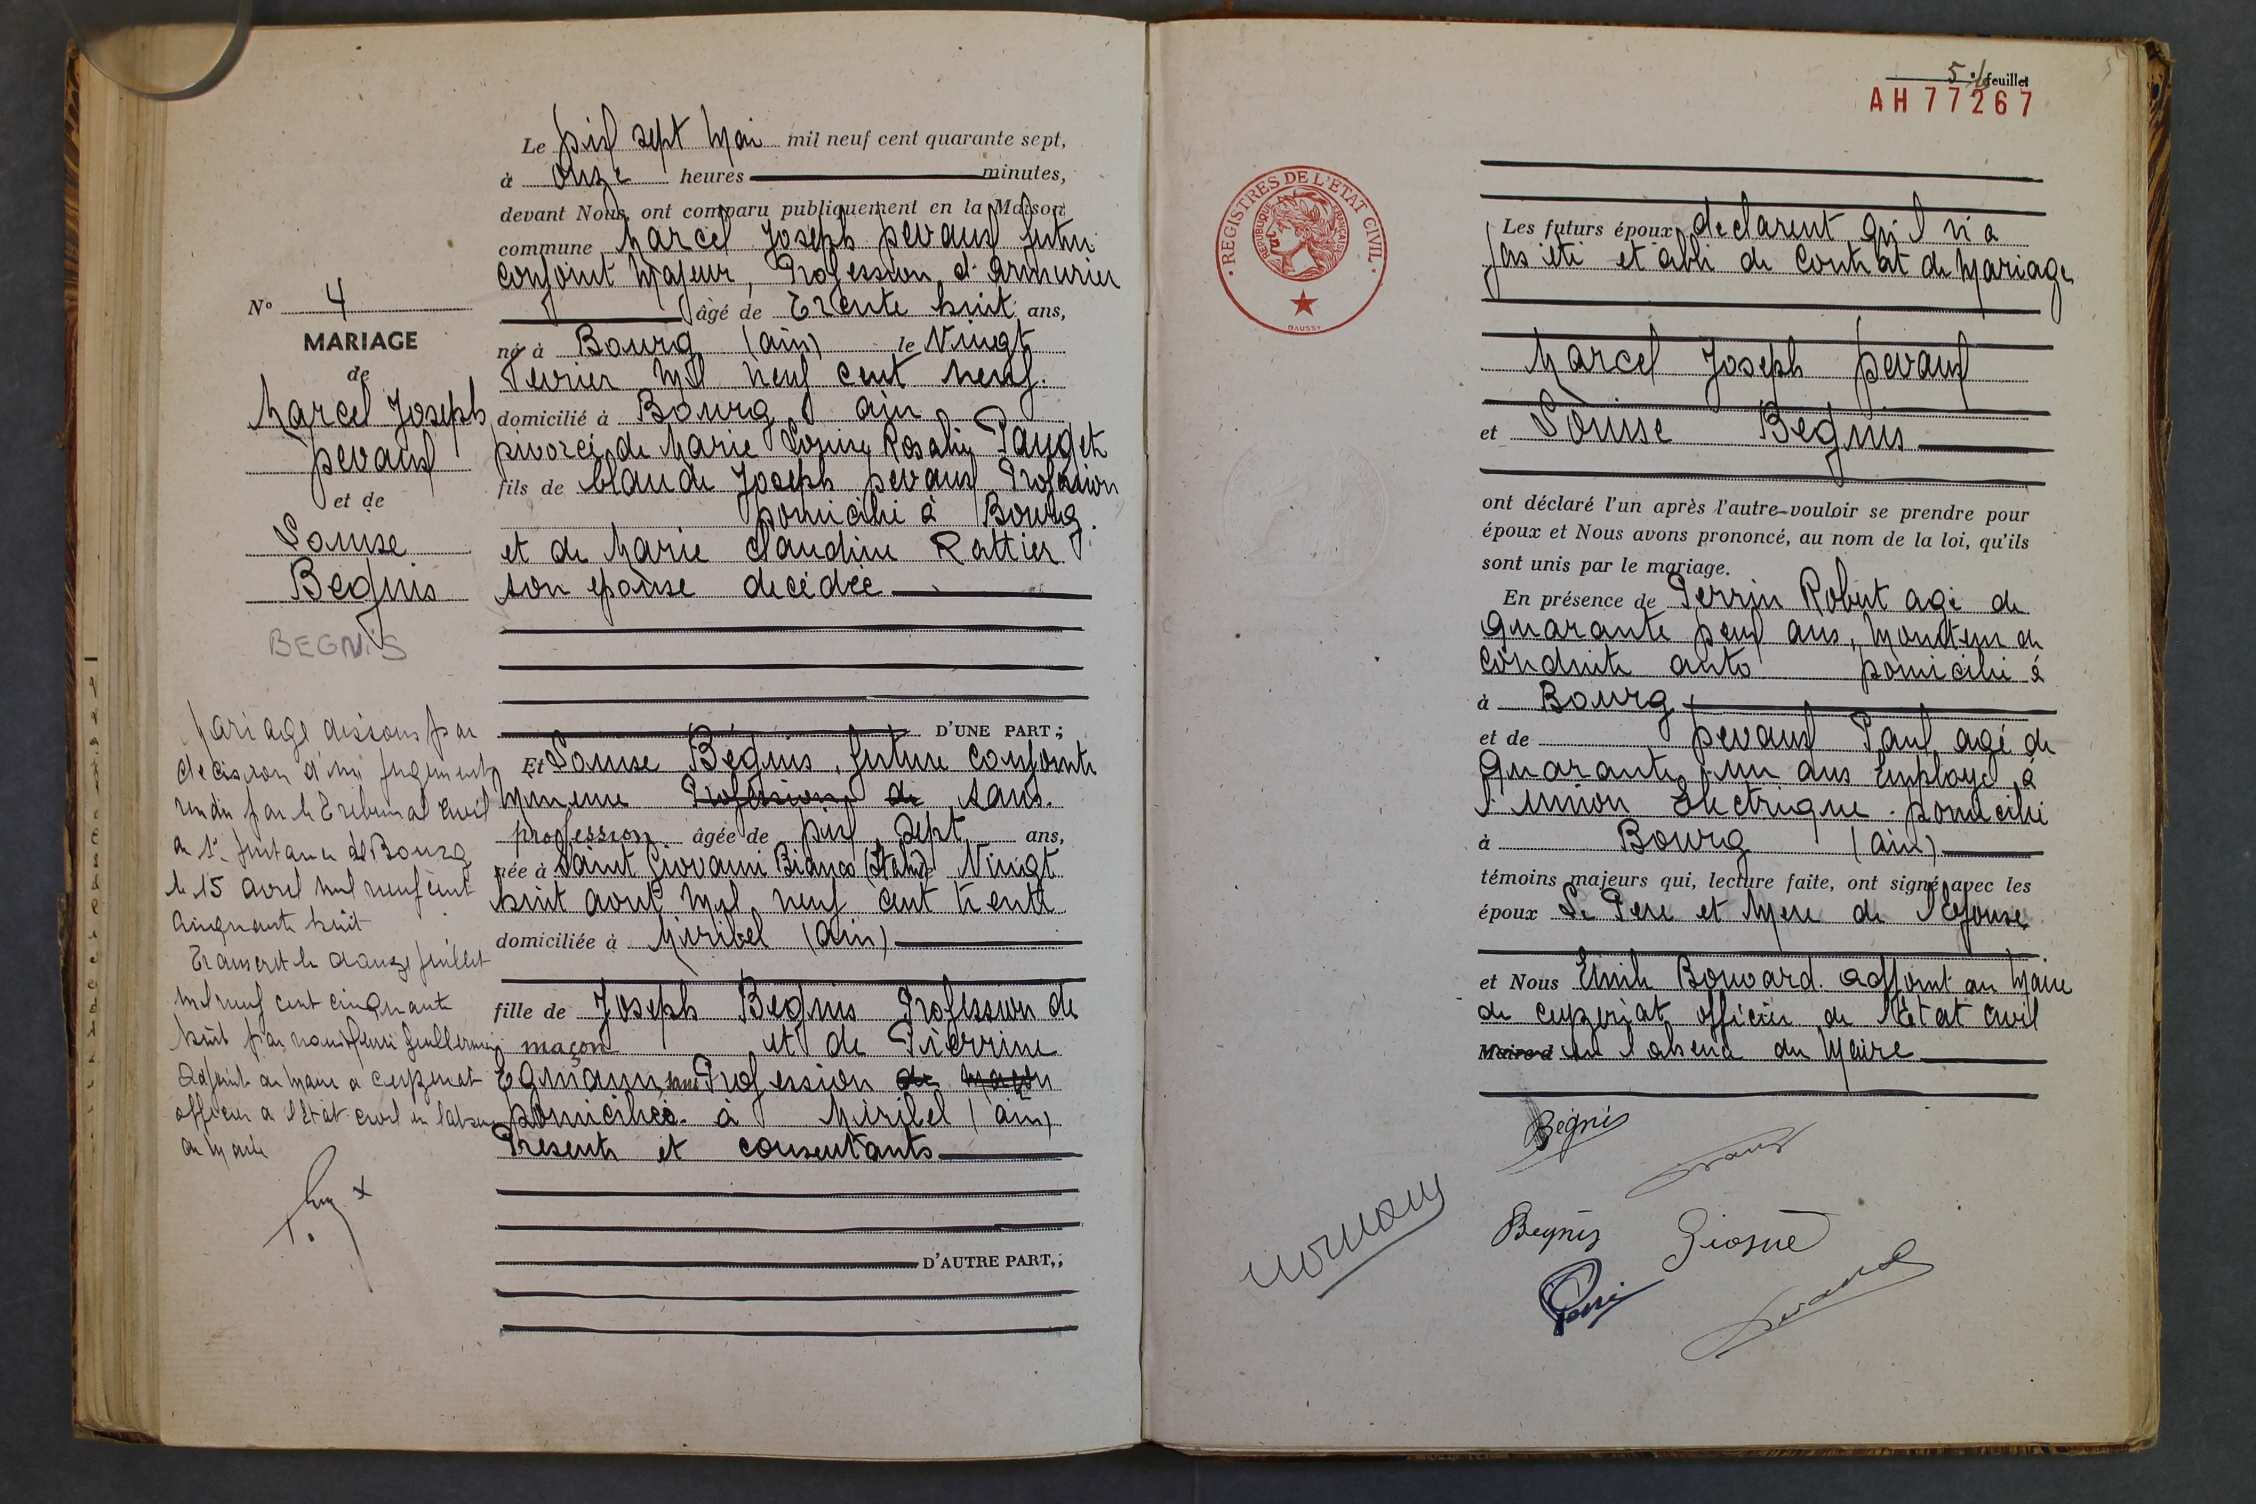 Le dix sept Mai mil neuf cent quarante sept,
à onze heures minutes,
devant Nous ont comparu publiquement en la Maison
commune Marcel Joseph Devaux futur
conjoint Majeur, Profession d'armurier
âgé de Trente huit ans,
né à Bourg (ain) le Vingt
Fevrier Mil neuf cent neuf.
domicilié à Bourg ain
Divorcé de Marie Louise Rosalie Pauget
fils de Claude Joseph Devaux Profession
Domicilié à Bourg
et de Marie Claudine Rattier
son epouse decédée
N° 4
MARIAGE
de
Marcel Joseph
Devaux
et de
Louise
Begnis
BEGNIS
Mariage dissous par
decision d'un jugement
rendu par le Tribunal Civil
de 1e Instance de Bourg
le 15 avril mil neuf cent
cinquante huit
Transcrit le douze juillet
mil neuf cent cinquante
huit par nous Henri Guillermin
Adjoint au Maire de Ceyzeriat
officier de l'état civil en l'absence
du Maire
D'UNE PART ;
Et Louise Bégnis, future conjointe
Mineure Profession de sans
profession âgée de Dix Sept ans,
née à Saint Giovanni Bianco (Italie) le Vingt
huit aout Mil neuf cent trente
domiciliée à Miribel (Ain)
fille de Joseph Begnis Profession de
maçon et de Pierrine
Egmann sans Profession de maçon
Domiciliés à Miribel (ain)
Présents et consentants
D'AUTRE PART, ;
5 feuillet
AH 77267
REGISTRES DE L'ETAT CIVIL
REPUBLIQUE FRANÇAISE
DAUSSY
Les futurs époux declarent qu'il n'a
pas été etabli de contrat de Mariage
Marcel Joseph Devaux
et Louise Begnis
ont déclaré l'un après l'autre vouloir se prendre pour
époux et Nous avons prononcé, au nom de la loi, qu'ils
sont unis par le mariage.
En présence de Perrin Robert agé de
Quarante Deux ans, Moniteur de
conduite auto Domicilié à
à Bourg
et de Devaux Paul agé de
Quarante un ans Employé à
l'union Electrique Domicilié
à Bourg (ain)
témoins majeurs qui, lecture faite, ont signé avec les
époux Le Pere et Mere de l'Epouse
et Nous Emile Bouvard adjoint au Maire
de Ceyzeriat officier de l'état civil
Maire d en l'absence du Maire
Begnis
Begnis Giosuè